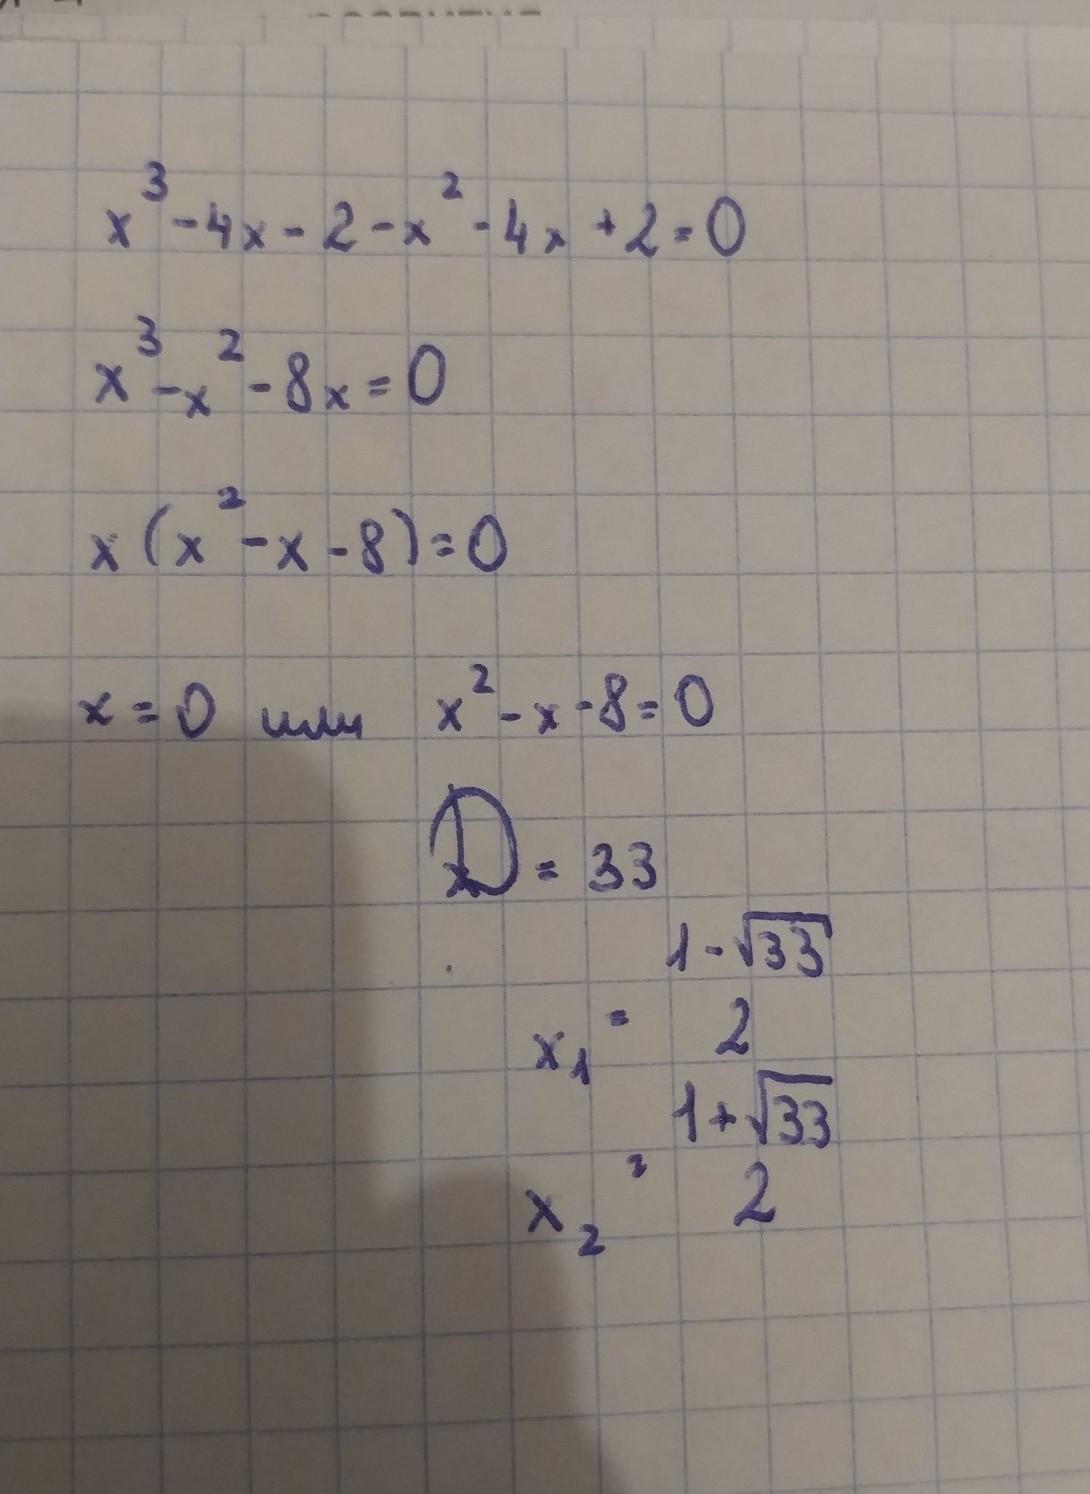 x³-4x-2-x²-4x+2=0
x³-x²-8x=0
x(x²-x-8)=0
x=0 или x²-x-8=0
D=33
x₁ = (1-√33)/2
x₂ = (1+√33)/2